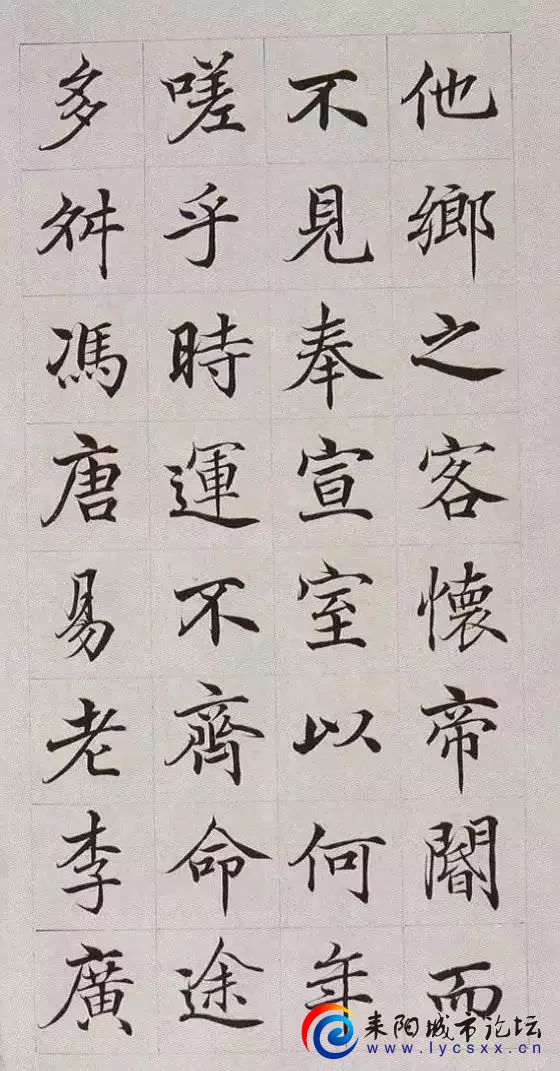 他鄉之客懷帝閽而
不見奉宣室以何年
嗟乎時運不齊命途
多舛馮唐易老李廣
耒阳城市论坛
www.lycsxx.cn